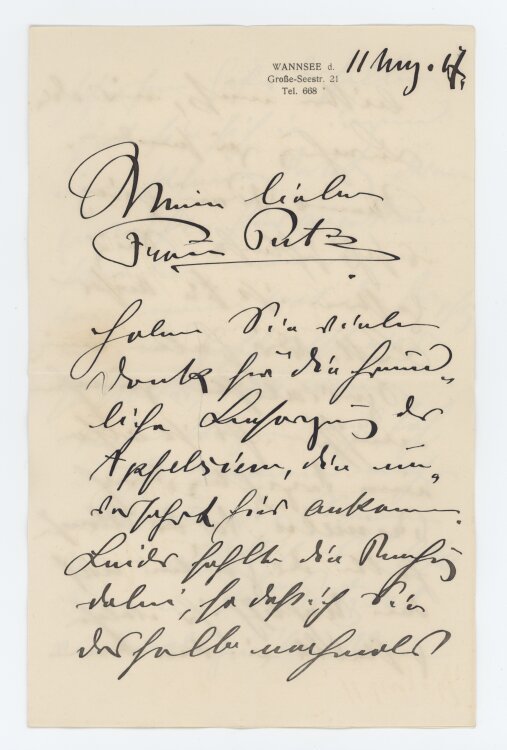 WANNSEE d.
Große-Seestr. 21
Tel. 668
11 Aug. 17.
Meine liebe
Frau Putz
haben Sie vielen
Dank für die freund„
liche Besorgung der
Apfelsinen, die un„
versehrt hier ankamen.
Leider fehlte die Rechnung
dabei, so daß ich Sie
deshalb nochmals